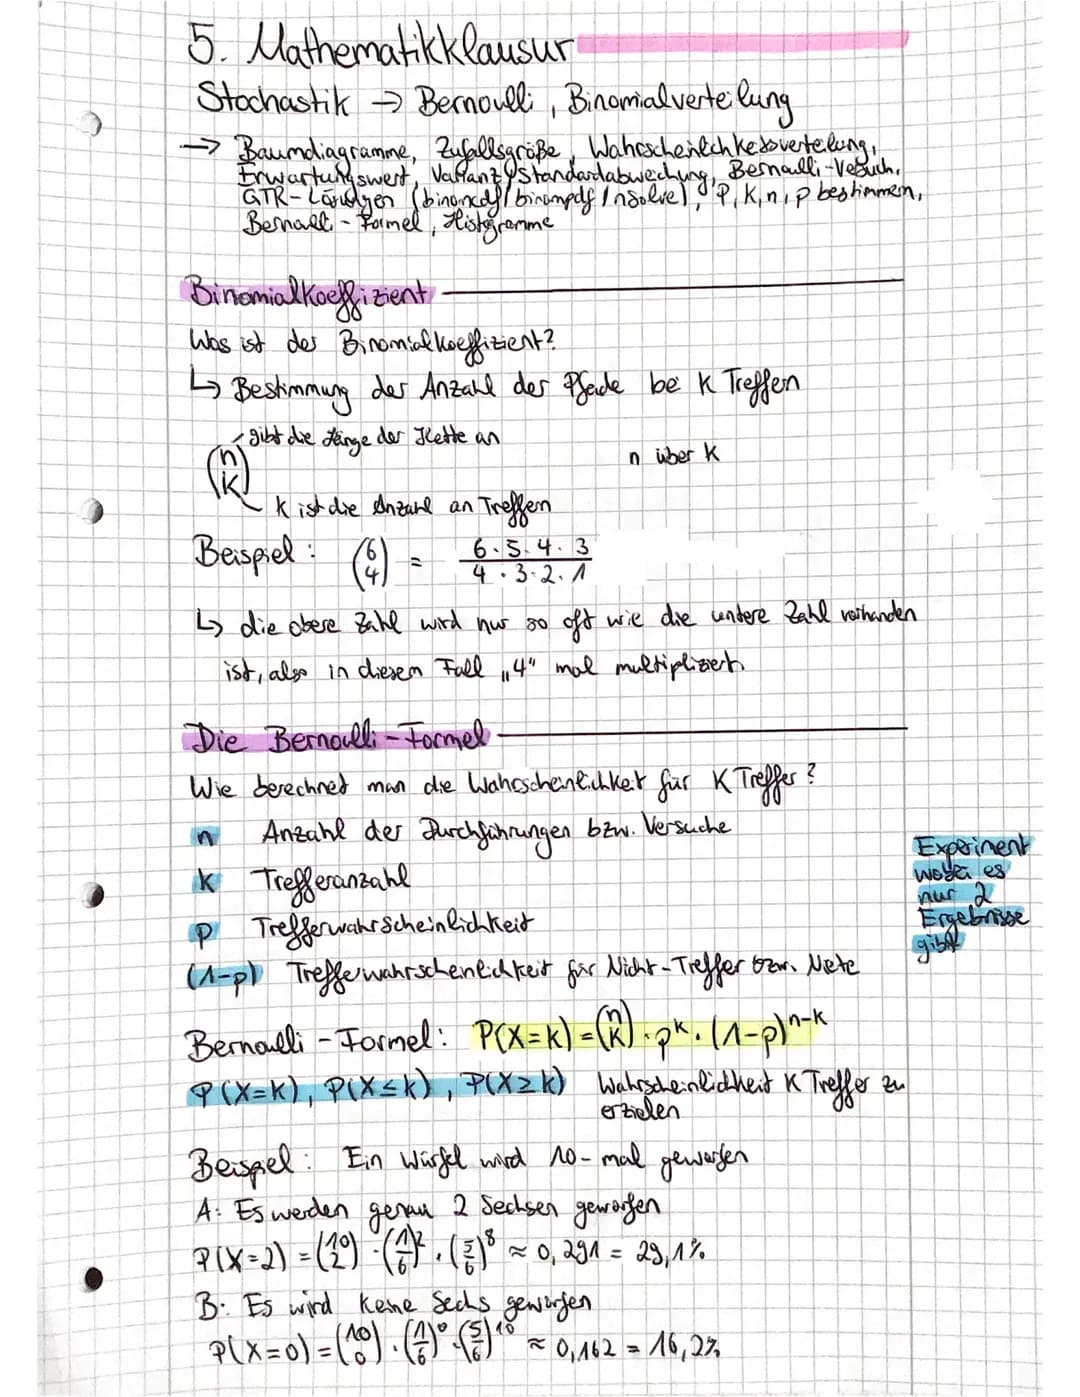 5. Mathematikklausur
Stochastik → Bernoulli, Binomialverteilung
→ Baumdiagramme, Zufallsgröße, Wahrscheinlichkeitsverteilung,
Erwartungswert, Varianz/Standardabweichung, Bernoulli-Vesuch,
GTR-Lösungen (binomcdf/binompdf/nsolve), P, K, n, p bestimmen,
Bernoulli-Formel, Histogramme
Binomialkoeffizient
Was ist der Binomialkoeffizient?
↳ Bestimmung der Anzahl der Pfade bei K Treffern
gibt die Länge der Kette an
(n K)
n über K
K ist die Anzahl an Treffern
Beispiel: (6 4) = 6·5·4·3 / 4·3·2·1
↳ die obere Zahl wird nur so oft wie die untere Zahl vorhanden
ist, also in diesem Fall „4" mal multipliziert
Die Bernoulli-Formel
Wie berechnet man die Wahrscheinlichkeit für K Treffer?
n Anzahl der Durchführungen bzw. Versuche
k Trefferanzahl
p Trefferwahrscheinlichkeit
(1-p) Trefferwahrscheinlichkeit für Nicht-Treffer bzw. Niete
Experiment
wobei es
nur 2
Ergebnisse
gibt
Bernoulli-Formel: P(X=k) = (n K) · p^k · (1-p)^n-k
P(X=k), P(X≤k), P(X≥k) Wahrscheinlichkeit K Treffer zu
erzielen
Beispiel: Ein Würfel wird 10-mal geworfen
A: Es werden genau 2 Sechsen geworfen
P(X=2) = (10 2) · (1/6)^2 · (5/6)^8 ≈ 0,291 = 29,1%
B: Es wird keine Sechs geworfen
P(X=0) = (10 0) · (1/6)^0 · (5/6)^10 ≈ 0,162 = 16,2%